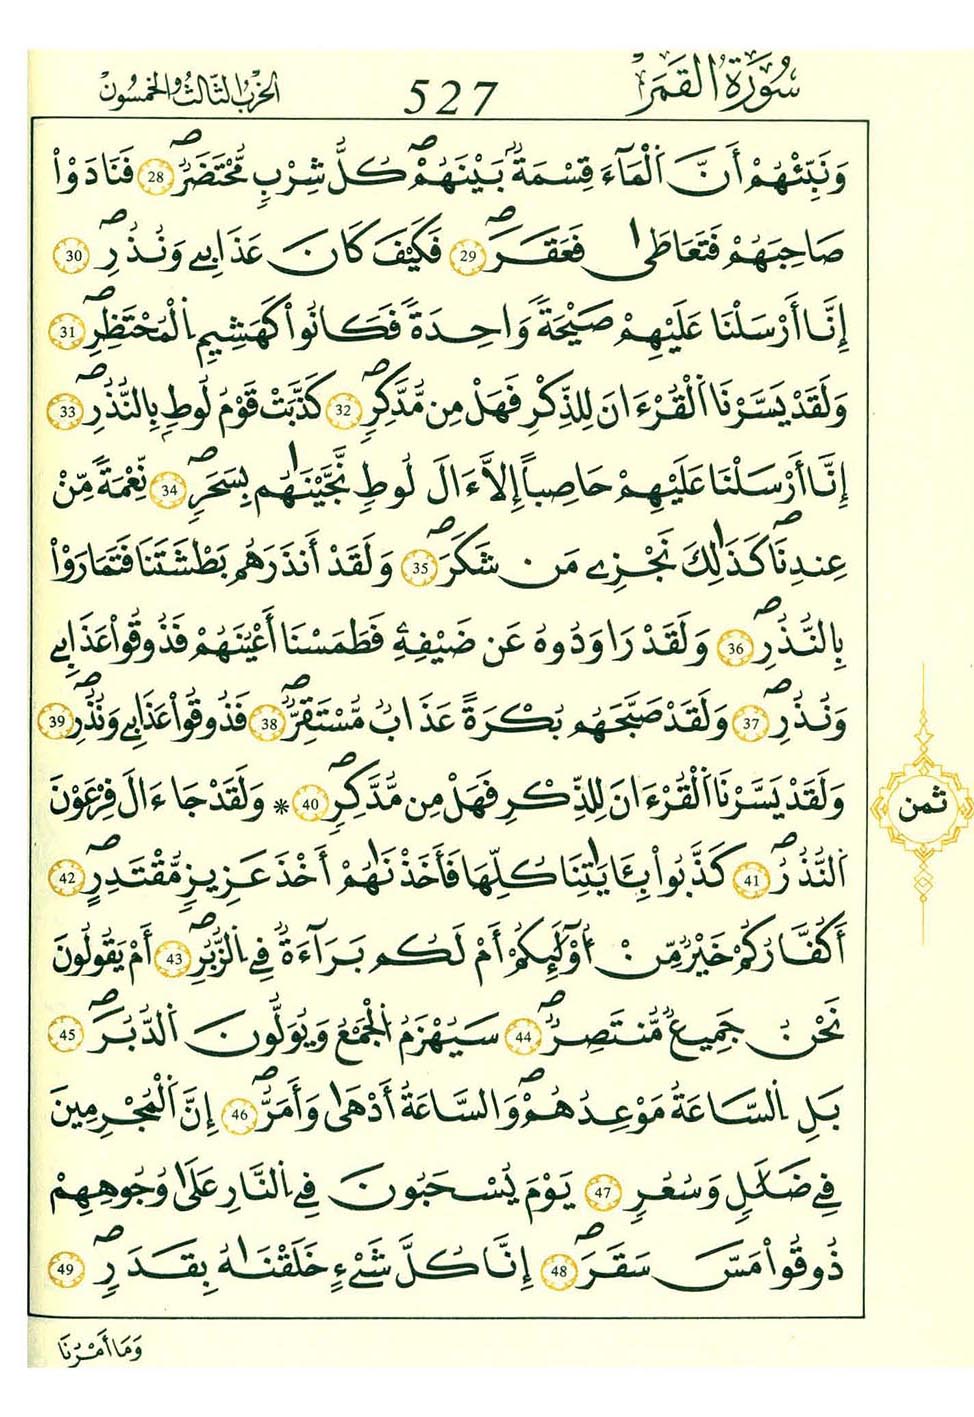 سُورَةُ الْقَمَرِ 527 الحِزْبُ الثَّالِثُ وَالخَمْسُونَ
وَنَبِّئْهُمْ أَنَّ اَ۬لْمَآءَ قِسْمَةُۢ بَيْنَهُمْۖ كُلُّ شِرْبٖ مُّحْتَضَرٞۖ 28 فَنَادَوْاْ
صَاحِبَهُمْ فَتَعَاطَىٰ فَعَقَرَۖ 29 فَكَيْفَ كَانَ عَذَابِے وَنُذُرِۦۖ 30
إِنَّآ أَرْسَلْنَا عَلَيْهِمْ صَيْحَةٗ وَٰحِدَةٗ فَكَانُواْ كَهَشِيمِ اِ۬لْمُحْتَظِرِۖ 31
وَلَقَدْ يَسَّرْنَا اَ۬لْقُرْءَانَ لِلذِّكْرِ فَهَلْ مِن مُّدَّكِرٖۖ 32 كَذَّبَتْ قَوْمُ لُوطِۢ بِالنُّذُرِۖ 33
إِنَّآ أَرْسَلْنَا عَلَيْهِمْ حَاصِباً إِلَّآ ءَالَ لُوطٖ نَّجَّيْنَٰهُم بِسَحَرٖۖ 34 نِّعْمَةٗ مِّنْ
عِندِنَاۖ كَذَٰلِكَ نَجْزِے مَن شَكَرَۖ 35 وَلَقَدْ أَنذَرَهُم بَطْشَتَنَا فَتَمَارَوْاْ
بِالنُّذُرِۖ 36 وَلَقَدْ رَٰوَدُوهُ عَن ضَيْفِهِۦ فَطَمَسْنَآ أَعْيُنَهُمْ فَذُوقُواْ عَذَابِے
وَنُذُرِۦۖ 37 وَلَقَدْ صَبَّحَهُم بُكْرَةً عَذَابٞ مُّسْتَقِرّٞۖ 38 فَذُوقُواْ عَذَابِے وَنُذُرِۦۖ 39
وَلَقَدْ يَسَّرْنَا اَ۬لْقُرْءَانَ لِلذِّكْرِ فَهَلْ مِن مُّدَّكِرٖۖ 40 * وَلَقَدْ جَآءَ الَ فِرْعَوْنَ
ثمن
اَ۬لنُّذُرُۖ 41 كَذَّبُواْ بِـَٔايَٰتِنَا كُلِّهَا فَأَخَذْنَٰهُمْ أَخْذَ عَزِيزٖ مُّقْتَدِرٍۖ 42
أَكُفَّارُكُمْ خَيْرٞ مِّنْ أُوْلَٰٓئِكُمْ أَمْ لَكُم بَرَآءَةٞ فِے اِ۬لزُّبُرِۖ 43 أَمْ يَقُولُونَ
نَحْنُ جَمِيعٞ مُّنتَصِرٞۖ 44 سَيُهْزَمُ اُ۬لْجَمْعُ وَيُوَلُّونَ اَ۬لدُّبُرَۖ 45
بَلِ اِ۬لسَّاعَةُ مَوْعِدُهُمْۖ وَالسَّاعَةُ أَدْهَىٰ وَأَمَرُّۖ 46 إِنَّ اَ۬لْمُجْرِمِينَ
فِے ضَلَٰلٖ وَسُعُرٖ 47 يَوْمَ يُسْحَبُونَ فِے اِ۬لنَّارِ عَلَىٰ وُجُوهِهِمْ
ذُوقُواْ مَسَّ سَقَرَۖ 48 إِنَّا كُلَّ شَےْءٍ خَلَقْنَٰهُ بِقَدَرٖۖ 49
وَمَآ أَمْرُنَا